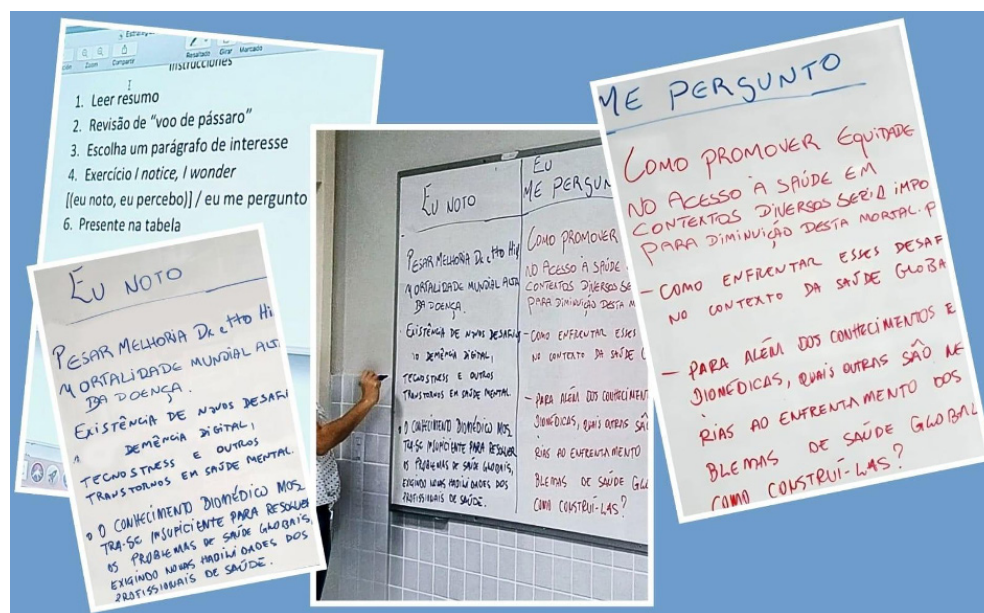 Zoom
Compartir
Resaltado
Girar
Marcado
Instrucciones
1. Leer resumo
2. Revisão de “voo de pássaro”
3. Escolha um parágrafo de interesse
4. Exercício I notice, I wonder
[(eu noto, eu percebo)] / eu me pergunto
6. Presente na tabela
EU NOTO
PESAR MELHORIA DE
MORTALIDADE MUNDIAL
DA DOENÇA.
EXISTÊNCIA DE NOVOS DESAFI
DEMÊNCIA DIGITAL,
TECNOSTRESS E OUTROS
TRANSTORNOS EM SAÚDE MENTAL.
• O CONHECIMENTO BIOMÉDICO MOS
TRA-SE INSUFICIENTE PARA RESOLVER
OS PROBLEMAS DE SAÚDE GLOBAIS,
EXIGINDO NOVAS HABILIDADES DOS
PROFISSIONAIS DE SAÚDE.
EU NOTO
PESAR MELHORIA DE
MORTALIDADE MUNDIAL ALTA
DA DOENÇA.
· EXISTÊNCIA DE NOVOS DESAFIO
DEMÊNCIA DIGITAL,
TECNOSTRESS E OUTROS
TRANSTORNOS EM SAÚDE MENTAL.
• O CONHECIMENTO BIOMÉDICO MOS
TRA-SE INSUFICIENTE PARA RESOLVER
OS PROBLEMAS DE SAÚDE GLOBAIS,
EXIGINDO NOVAS HABILIDADES DOS
PROFISSIONAIS DE SAÚDE.
EU
ME PERGUN
COMO PROMOVER
NO ACESSO À SAÚDE
CONTEXTOS DIVERSOS SE
PARA DIMINUIÇÃO DESTA M
- COMO ENFRENTAR ESSES
NO CONTEXTO DA SAÚDE G
- PARA ALÉM DOS CONHECIMENT
BIOMÉDICAS, QUAIS OUTRAS SÃO
RIAS AO ENFRENTAMENTO
BLEMAS DE SAÚDE GLO
COMO CONSTRUÍ-LAS?
ME PERGUNTO
COMO PROMOVER EQUIDADE
NO ACESSO À SAÚDE EM
CONTEXTOS DIVERSOS SERIA IMPO
PARA DIMINUIÇÃO DESTA MORTAL. P
- COMO ENFRENTAR ESSES DESAF
NO CONTEXTO DA SAÚDE GLOBA
- PARA ALÉM DOS CONHECIMENTOS E
BIOMÉDICAS, QUAIS OUTRAS SÃO NE
RIAS AO ENFRENTAMENTO DOS
BLEMAS DE SAÚDE GLOBAL
COMO CONSTRUÍ-LAS?